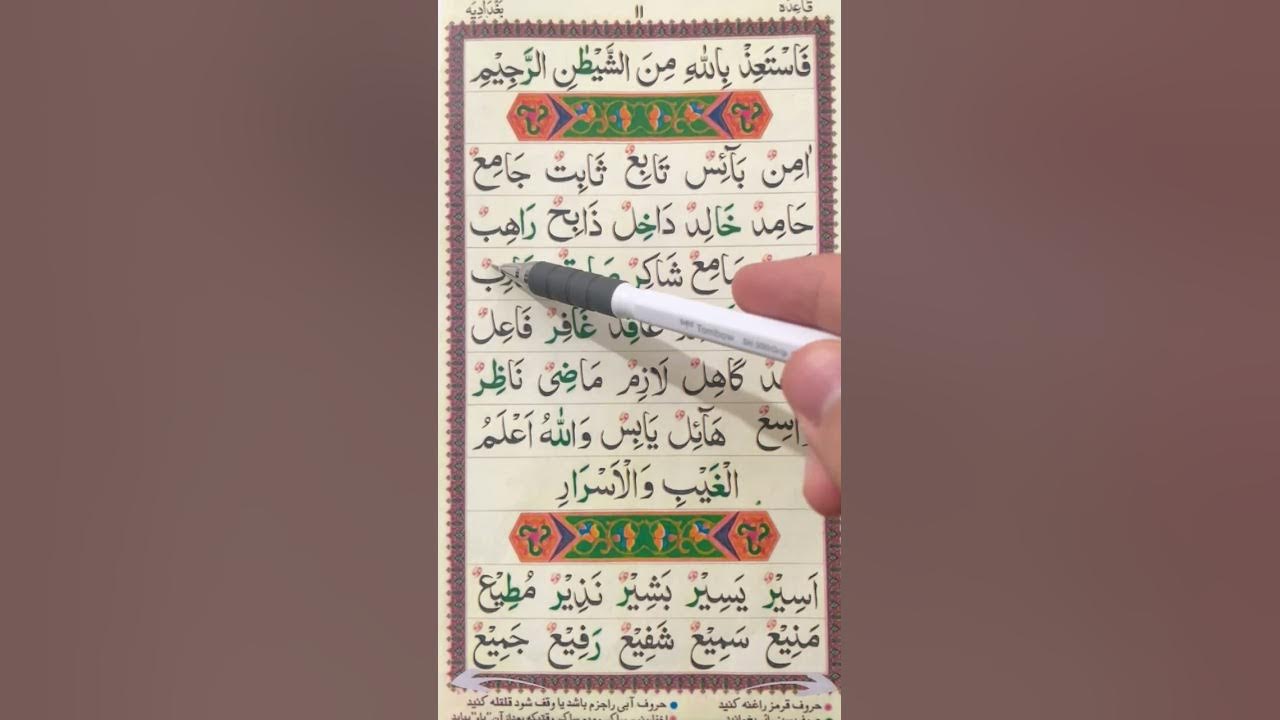 قاعده ١١ بغدادیه
فَاسْتَعِذْ بِاللهِ مِنَ الشَّيْطٰنِ الرَّجِيْمِ
اٰمِنٌ بَآئِسٌ تَابِعٌ ثَابِتٌ جَامِعٌ
حَامِدٌ خَالِدٌ دَاخِلٌ ذَابِحٌ رَاهِبٌ
سَامِعٌ شَاكِرٌ
عَاقِدٌ غَافِرٌ فَاعِلٌ
گَاهِلٌ لَازِمٌ مَاضِیٌ نَاظِرٌ
وَاسِعٌ هَآئِلٌ يَابِسٌ وَاللهُ اَعْلَمُ
الْغَيْبِ وَالْاَسْرَارِ
اَسِيْرٌ يَسِيْرٌ بَشِيْرٌ نَذِيْرٌ مُطِيْعٌ
مَنِيْعٌ سَمِيْعٌ شَفِيْعٌ رَفِيْعٌ جَمِيْعٌ
حروف قرمز راغنه کنید حروف آبی راجزم باشد یا وقف شود قلقله کنید
Tombow